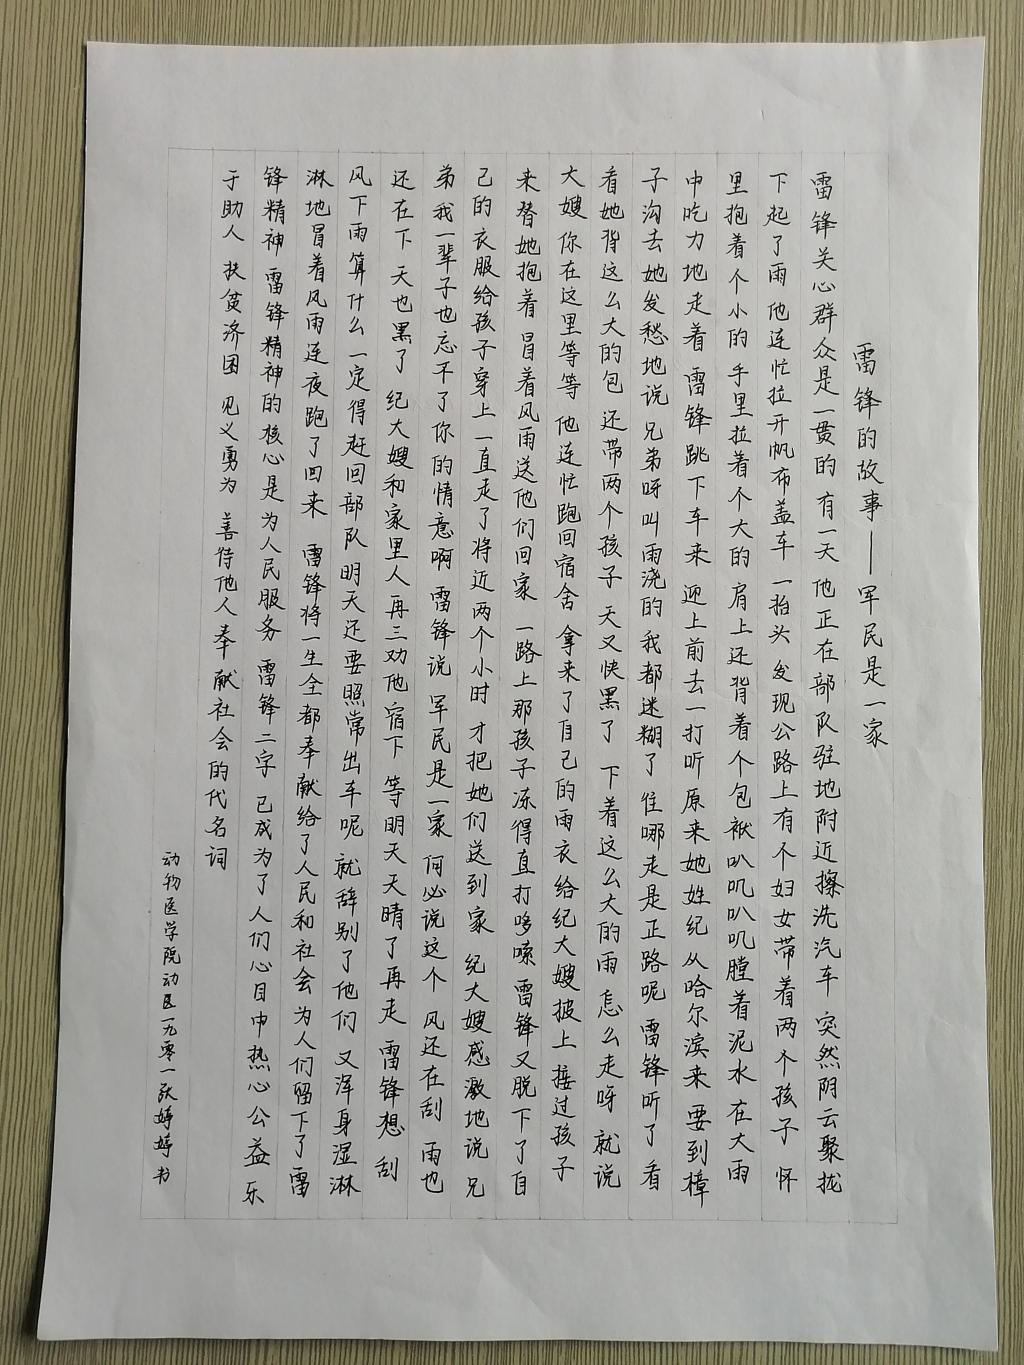 雷锋的故事——军民是一家
雷锋关心群众是一贯的 有一天 他正在部队驻地附近擦洗汽车 突然阴云聚拢
下起了雨 他连忙拉开帆布盖车 一抬头 发现公路上有个妇女带着两个孩子 怀
里抱着个小的 手里拉着个大的 肩上还背着个包袱叭叽叭叽膛着泥水 在大雨
中吃力地走着 雷锋跳下车来 迎上前去一打听 原来她姓纪 从哈尔滨来 要到樟
子沟去她发愁地说 兄弟呀叫雨浇的 我都迷糊了 住哪走是正路呢 雷锋听了 看
看她背这么大的包 还带两个孩子 天又快黑了 下着这么大的雨 怎么走呀 就说
大嫂你在这里等等 他连忙跑回宿舍 拿来了自己的雨衣给纪大嫂披上 接过孩子
来替她抱着 冒着风雨送他们回家 一路上那孩子冻得直打哆嗦 雷锋又脱下了自
己的衣服给孩子穿上 一直走了将近两个小时 才把她们送到家 纪大嫂感激地说 兄
弟我一辈子也忘不了你的情意啊 雷锋说 军民是一家 何必说这个 风还在刮 雨也
还在下 天也黑了 纪大嫂和家里人再三劝他宿下 等明天天晴了再走 雷锋想 刮
风下雨算什么 一定得赶回部队 明天还要照常出车呢 就辞别了他们 又浑身湿淋
淋地冒着风雨连夜跑了回来 雷锋将一生全都奉献给了人民和社会 为人们留下了雷
锋精神 雷锋精神的核心是为人民服务 雷锋二字 已成为了人们心目中热心公益 乐
于助人 扶贫济困 见义勇为 善待他人 奉献社会的代名词
动物医学院动医一九零一张婷婷书